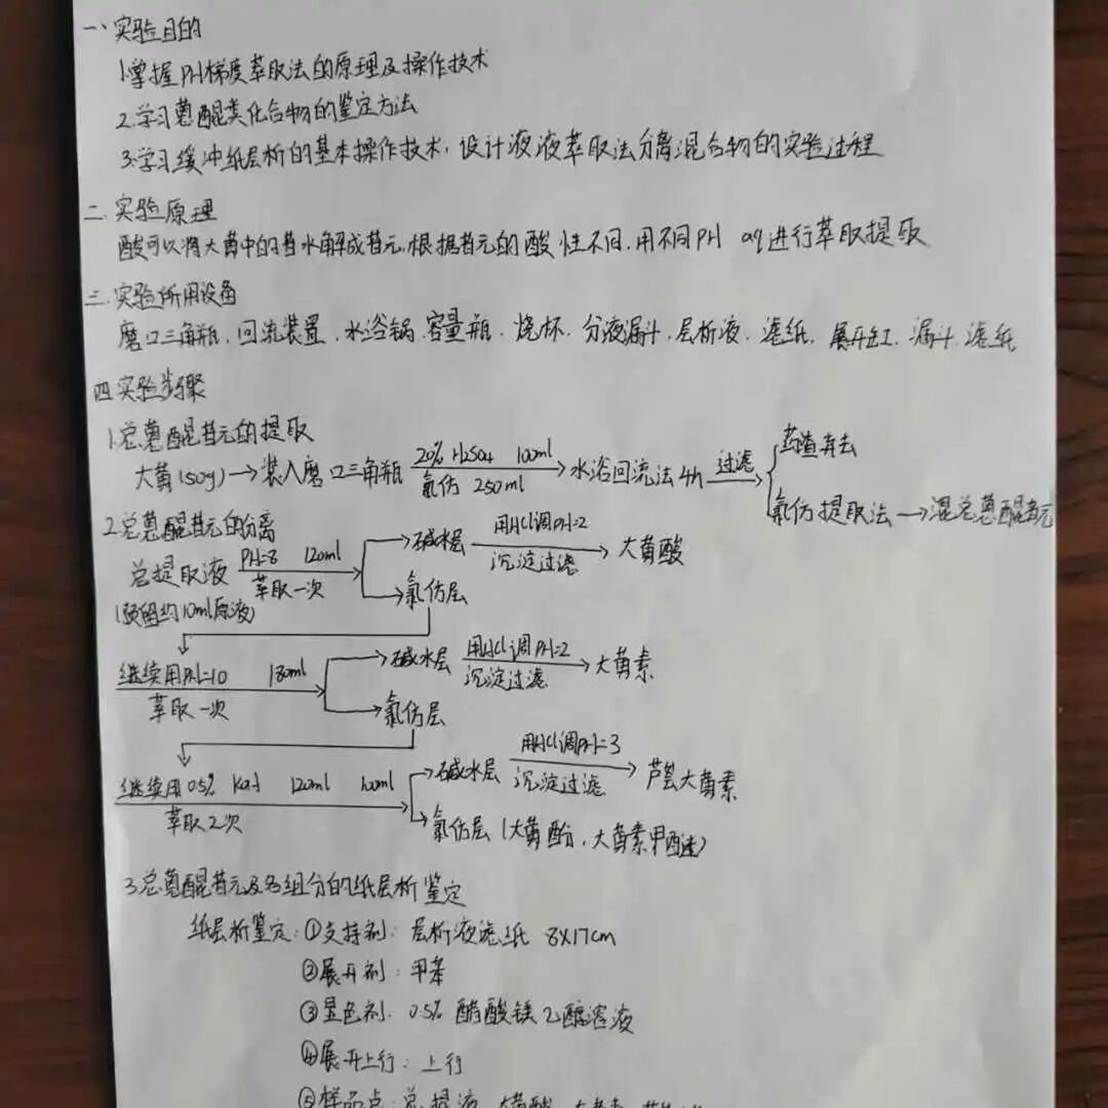 一、实验目的
1.掌握PH梯度萃取法的原理及操作技术
2.学习蒽醌类化合物的鉴定方法
3.学习缓冲纸层析的基本操作技术,设计液液萃取法分离混合物的实验过程
二.实验原理
酸可以将大黄中的苷水解成苷元,根据苷元的酸性不同,用不同PH aq进行萃取提取
三.实验所用设备
磨口三角瓶.回流装置.水浴锅.容量瓶.烧杯.分液漏斗.层析液.滤纸.展开缸.漏斗.滤纸
四.实验步骤
1.总蒽醌苷元的提取
大黄(50g)→装入磨口三角瓶 20% H2SO4 100ml 氯仿 250ml →水浴回流法4h 过滤→
药渣弃去
氯仿提取法→混总蒽醌苷元
2.总蒽醌苷元的分离
总提取液 PH=8 120ml 萃取一次 →碱水层 用HCl调PH=2 沉淀过滤→大黄酸
(预留约10ml原液) →氯仿层
继续用PH=10 180ml 萃取一次 →碱水层 用HCl调PH=2 沉淀过滤→大黄素
→氯仿层
继续用0.5% KOH 120ml 100ml 萃取2次 →碱水层 用HCl调PH=3 沉淀过滤→芦荟大黄素
→氯仿层(大黄酚.大黄素甲醚)
3.总蒽醌苷元及各组分的纸层析鉴定
纸层析鉴定:①支持剂:层析液滤纸 8X17cm
②展开剂:甲苯
③显色剂:0.5%醋酸镁乙醇溶液
④展开上行:上行
⑤样品点:总提液